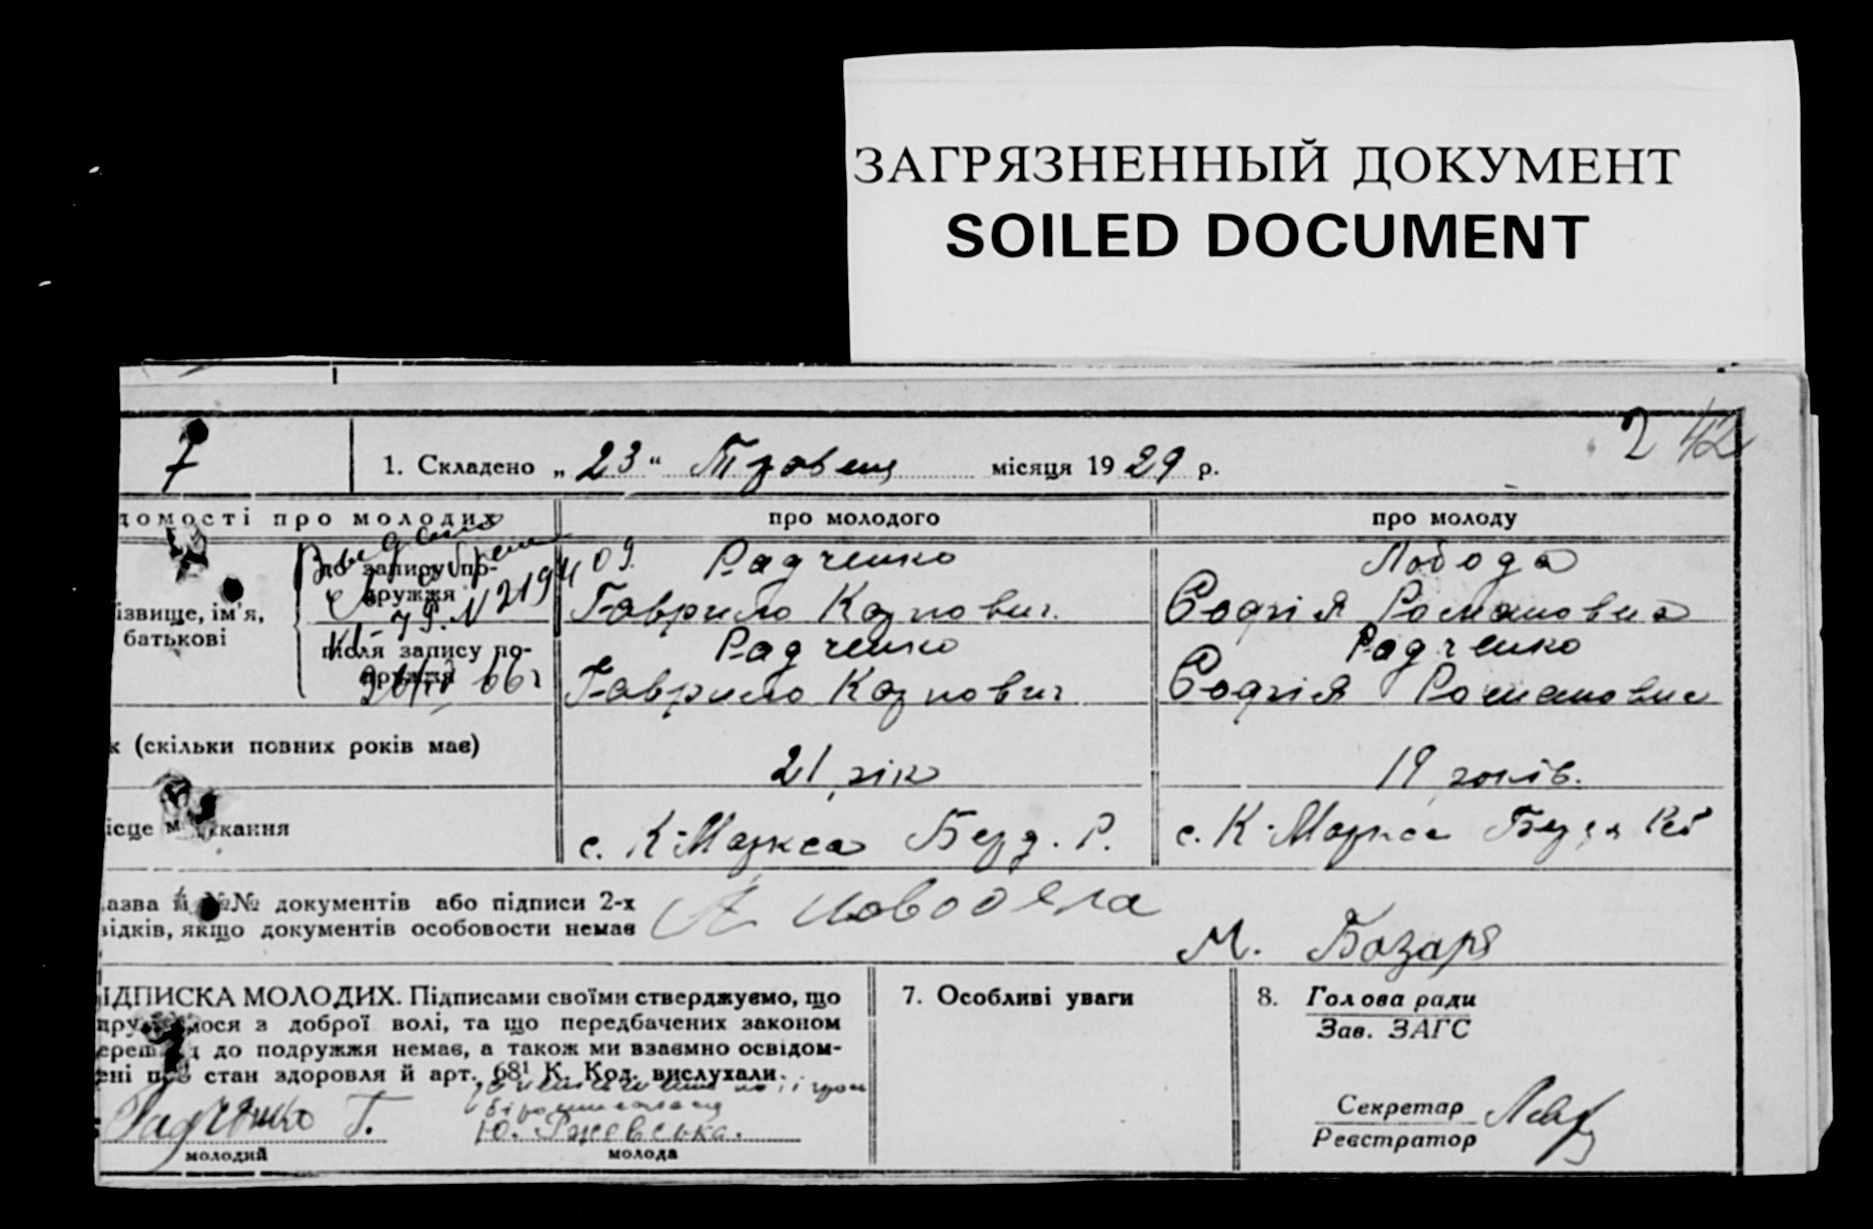 ЗАГРЯЗНЕННЫЙ ДОКУМЕНТ
SOILED DOCUMENT
2 42
7
1. Складено „ 23 “ Травня місяця 1929 р.
домості про молодих
про молодого
про молоду
до запису по-
дружжя
N 2194
ізвище, ім'я,
батькові
після запису по-
дружжя
66 г
Радченко
Гаврило Карпович
Радченко
Гаврило Карпович
Лобода
Софія Романовна
Радченко
Софія Романовна
к (скільки повних років має)
21 рік
19 років.
ісце мешкання
с. К-Маркса Берд. Р.
с. К-Маркса
азва й №№ документів або підписи 2-х
відків, якщо документів особовости немає
М. Базаря
ІДПИСКА МОЛОДИХ. Підписами своїми стверджуємо, що
дружимося з доброї волі, та що передбачених законом
до подружжя немає, а також ми взаємно освідом-
ені про стан здоровля й арт. 68¹ К. Код. вислухали.
Радченко Г.
молодий
Ю. Ржевська.
молода
7. Особливі уваги
8. Голова ради
Зав. ЗАГС
Секретар
Реєстратор